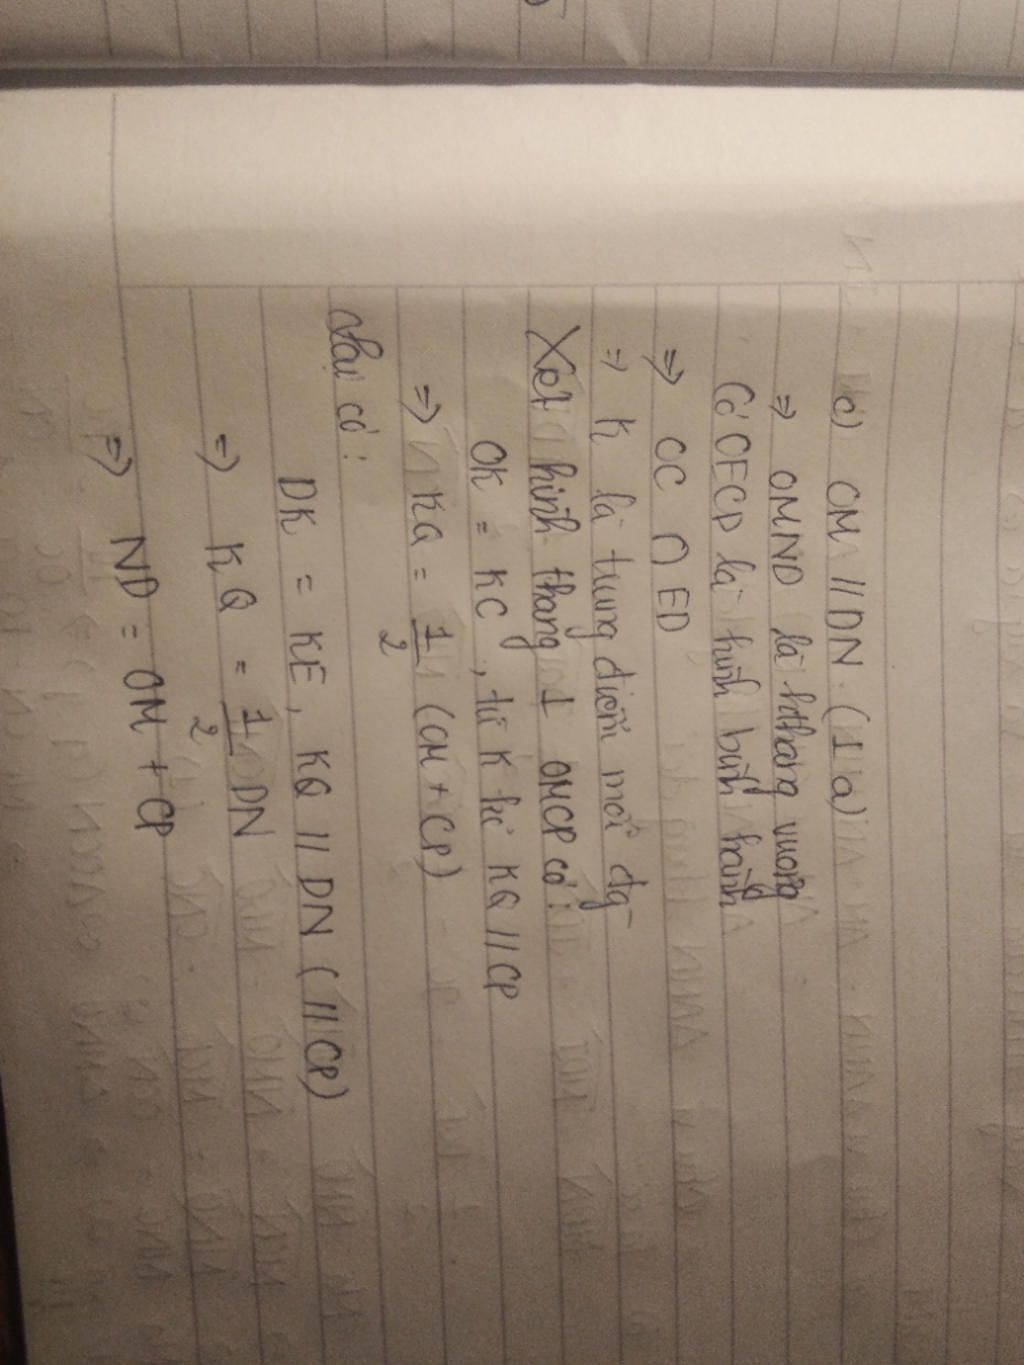 c) OM // DN. (⊥ a)
⇒ OMND là hthang vuông
Có OECD là hình bình hành
⇒ OC ∩ ED
⇒ K là trung điểm mỗi đg
Xét hình thang ⊥ OMCP có:
OK = KC, từ K kẻ KQ // CP
⇒ KQ = 1/2 (OM + CP)
Lại có:
DK = KE, KQ // DN (// CP)
⇒ KQ = 1/2 DN
⇒ ND = OM + CP